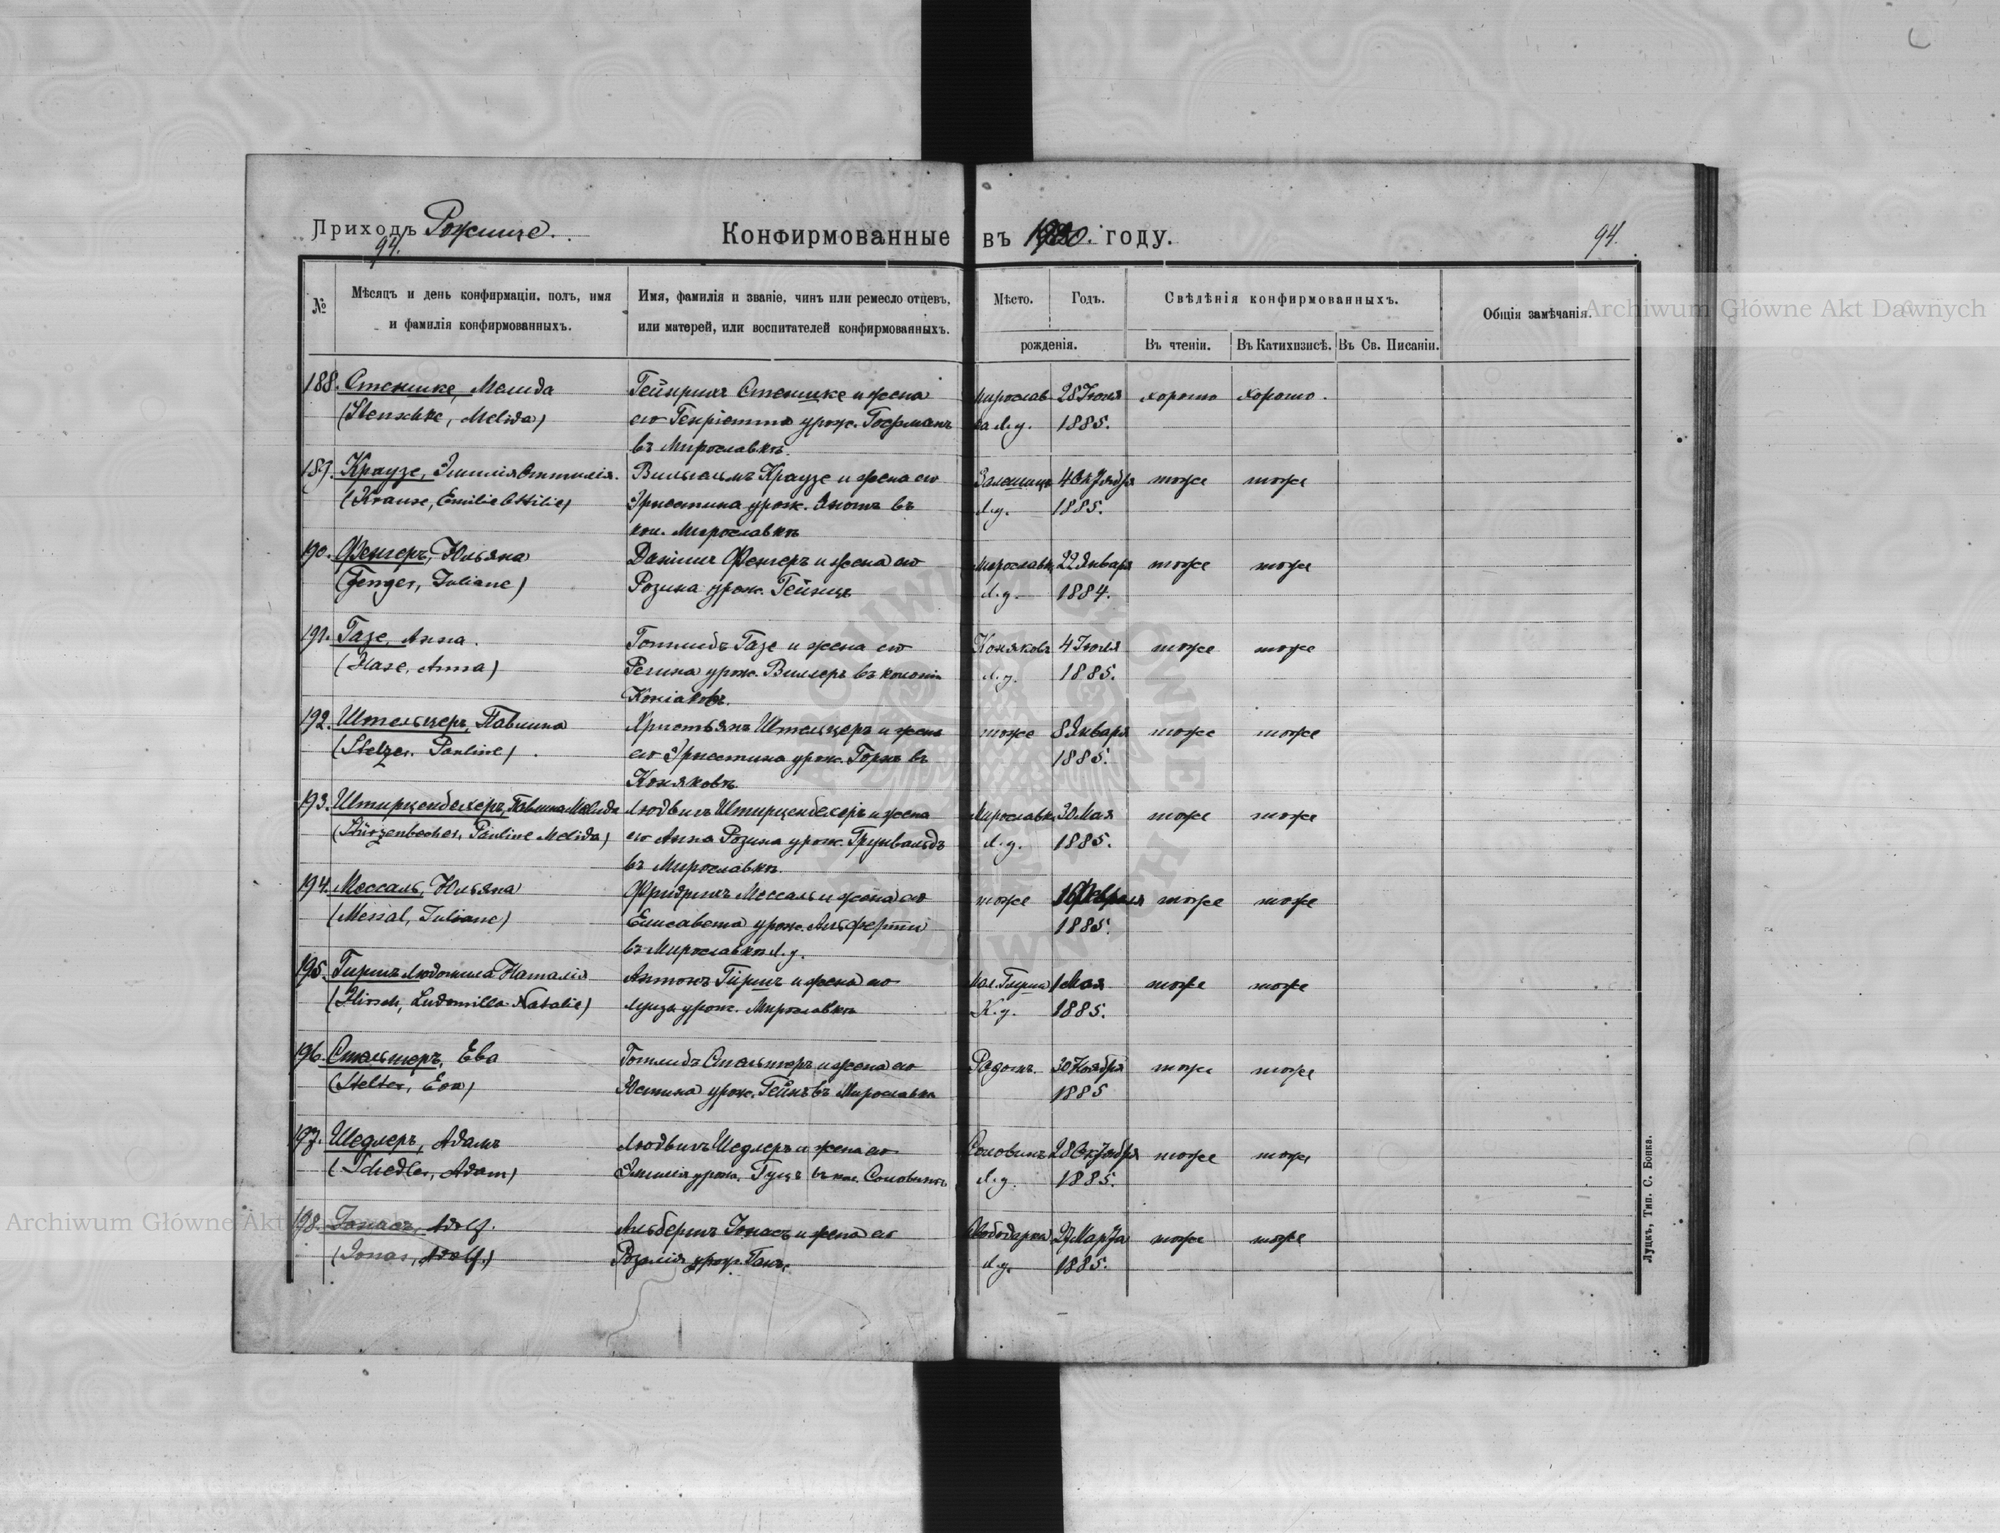 Приходъ Рожище.
94.
Конфирмованные въ 1900. году.
94.
№
Мѣсяцъ и день конфирмаціи, полъ, имя
и фамилія конфирмованныхъ.
Имя, фамилія и званіе, чинъ или ремесло отцевъ,
или матерей, или воспитателей конфирмованныхъ.
Мѣсто.
Годъ.
рожденія.
Свѣдѣнія конфирмованныхъ.
Въ чтеніи.
Въ Катихизисѣ.
Въ Св. Писаніи.
Общія замѣчанія.
188. Стеншке, Мелида
(Stenschke, Melida)
Гейнрихъ Стеншке и жена
его Генріетта урож. Гофманъ
въ Мирославкѣ.
Мирослав
ка Л. у.
28 Іюля
1885.
хорошо
хорошо.
189. Краузе, Эмилія Оттилія.
(Krause, Emilie Ottilie)
Вильгельмъ Краузе и жена его
Эрнестина урож. въ
кол. Мирославкѣ
Л. у.
4 Октября
1885.
тоже
тоже
190. Фенгеръ, Юльяна
(Fenger, Juliane)
Даніилъ Фенгеръ и жена его
Розина урож. Гейнцъ
Мирославка
Л. у.
22 Января
1884.
тоже
тоже
191. Газе, Анна.
(Hase, Anna)
Готлибъ Газе и жена его
Регина урож. Виллеръ въ колоніи
Коніаковъ.
Коняковъ
Л. у.
4 Іюля
1885.
тоже
тоже
192. Штельцеръ, Павлина
(Stelzer, Pauline)
Христьянъ Штельцеръ и жена
его Эрнестина урож. Горнъ въ
Коняковъ
тоже
8 Января
1885.
тоже
тоже
193. Штирценбехеръ, Павлина Мелида
(Stürzenbecher, Pauline Melida)
Людвигъ Штирценбехеръ и жена
его Анна Розина урож. Грунвальдъ
въ Мирославкѣ.
Мирославка
Л. у.
30 Мая
1885.
тоже
тоже
194. Мессаль, Юльяна
(Messal, Juliane)
Фридрихъ Мессаль и жена его
Елисавета урож.
въ Мирославкѣ Л. у.
тоже
Февраля
1885.
тоже
тоже
195. Гиршъ Людомила Наталія
(Hirsch, Ludomilla Natalie)
Антонъ Гиршъ и жена его
Луиза урож. Мирославкѣ
К. у.
1 Мая
1885.
тоже
тоже
196. Стельтеръ, Ева
(Stelter, Eva)
Готлибъ Стельтеръ и жена его
Юстина урож. Гейнъ въ Мирославкѣ
30 Ноября
1885
тоже
тоже
197. Шедлеръ, Адамъ
(Schedler, Adam)
Людвигъ Шедлеръ и жена его
Эмилія урож. въ кол. Соловинъ
Соловинъ
Л. у.
28 Октября
1885.
тоже
тоже
198. Іонасъ, Adolf.
(Jonas, Adolf.)
Альбертъ Іонасъ и жена его
Розалія урож. Ганъ.
Свободарка
Л. у.
27 Марта
1885.
тоже
тоже
Луцкъ, Тип. С. Бонка.
Archiwum Główne Akt Dawnych
Archiwum Główne Akt